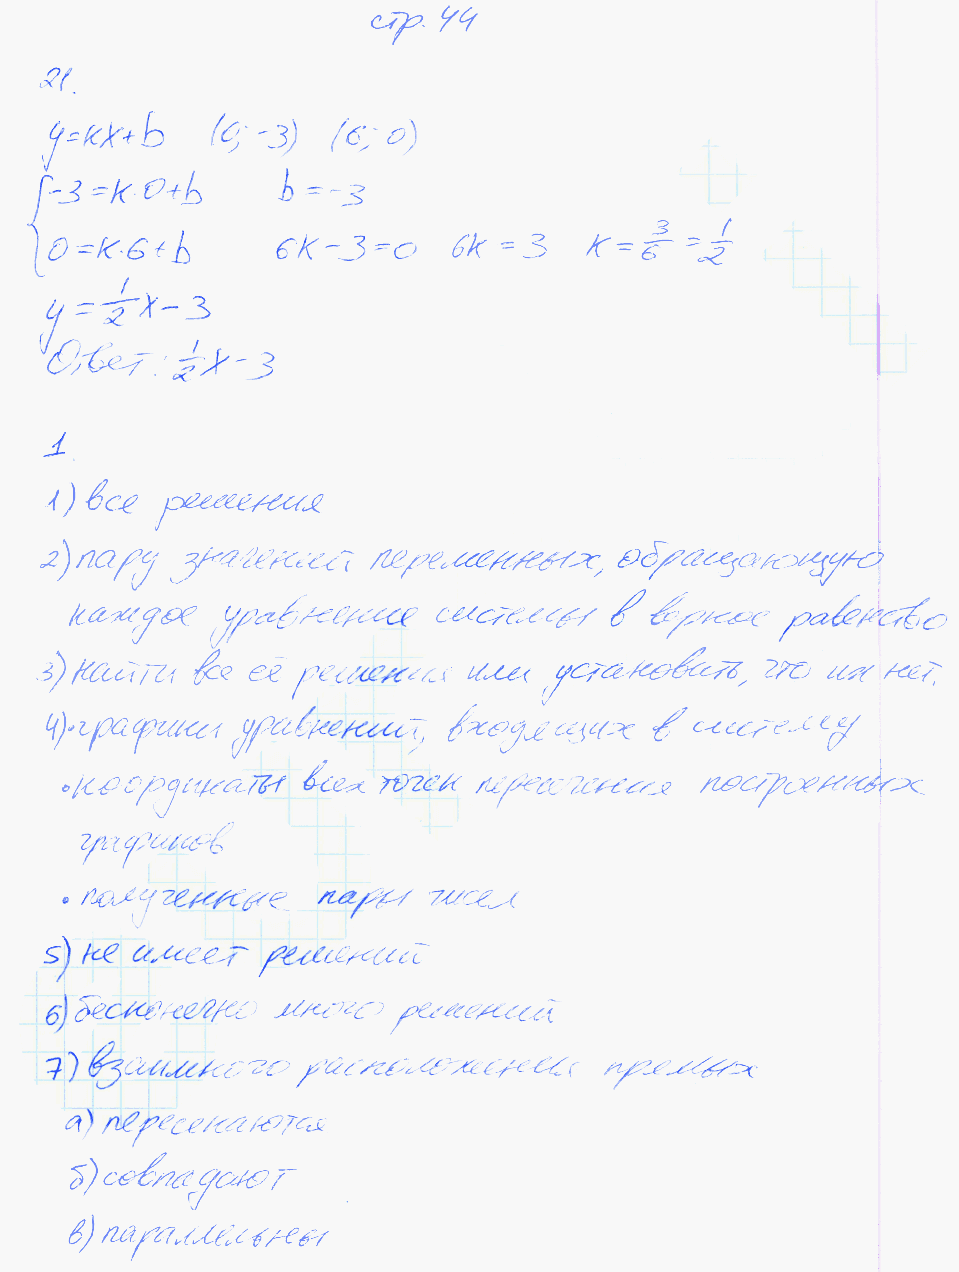 стр. 44
21.
y = kx + b (0; -3) (6; 0)
-3 = k·0 + b b = -3
0 = k·6 + b 6k - 3 = 0 6k = 3 k = 3/6 = 1/2
y = 1/2 x - 3
Ответ: 1/2 x - 3
1
1) все решения
2) пару значений переменных, обращающую
каждое уравнение системы в верное равенство
3) найти все её решения или установить, что их нет.
4) • графики уравнений, входящих в систему
• координаты всех точек пересечения построенных
графиков
• полученные пары чисел
5) не имеет решений
6) бесконечно много решений
7) взаимного расположения прямых
а) пересекаются
б) совпадают
в) параллельны